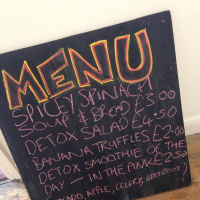 MENU
SPICEY SPINACH
SOUP & BREAD £3.00
DETOX SALAD £4.50
BANANA TRUFFLES £2.00
DETOX SMOOTHIE OF THE
DAY - IN THE PINK £2.50
APPLE, CELERY, BEETROOT?